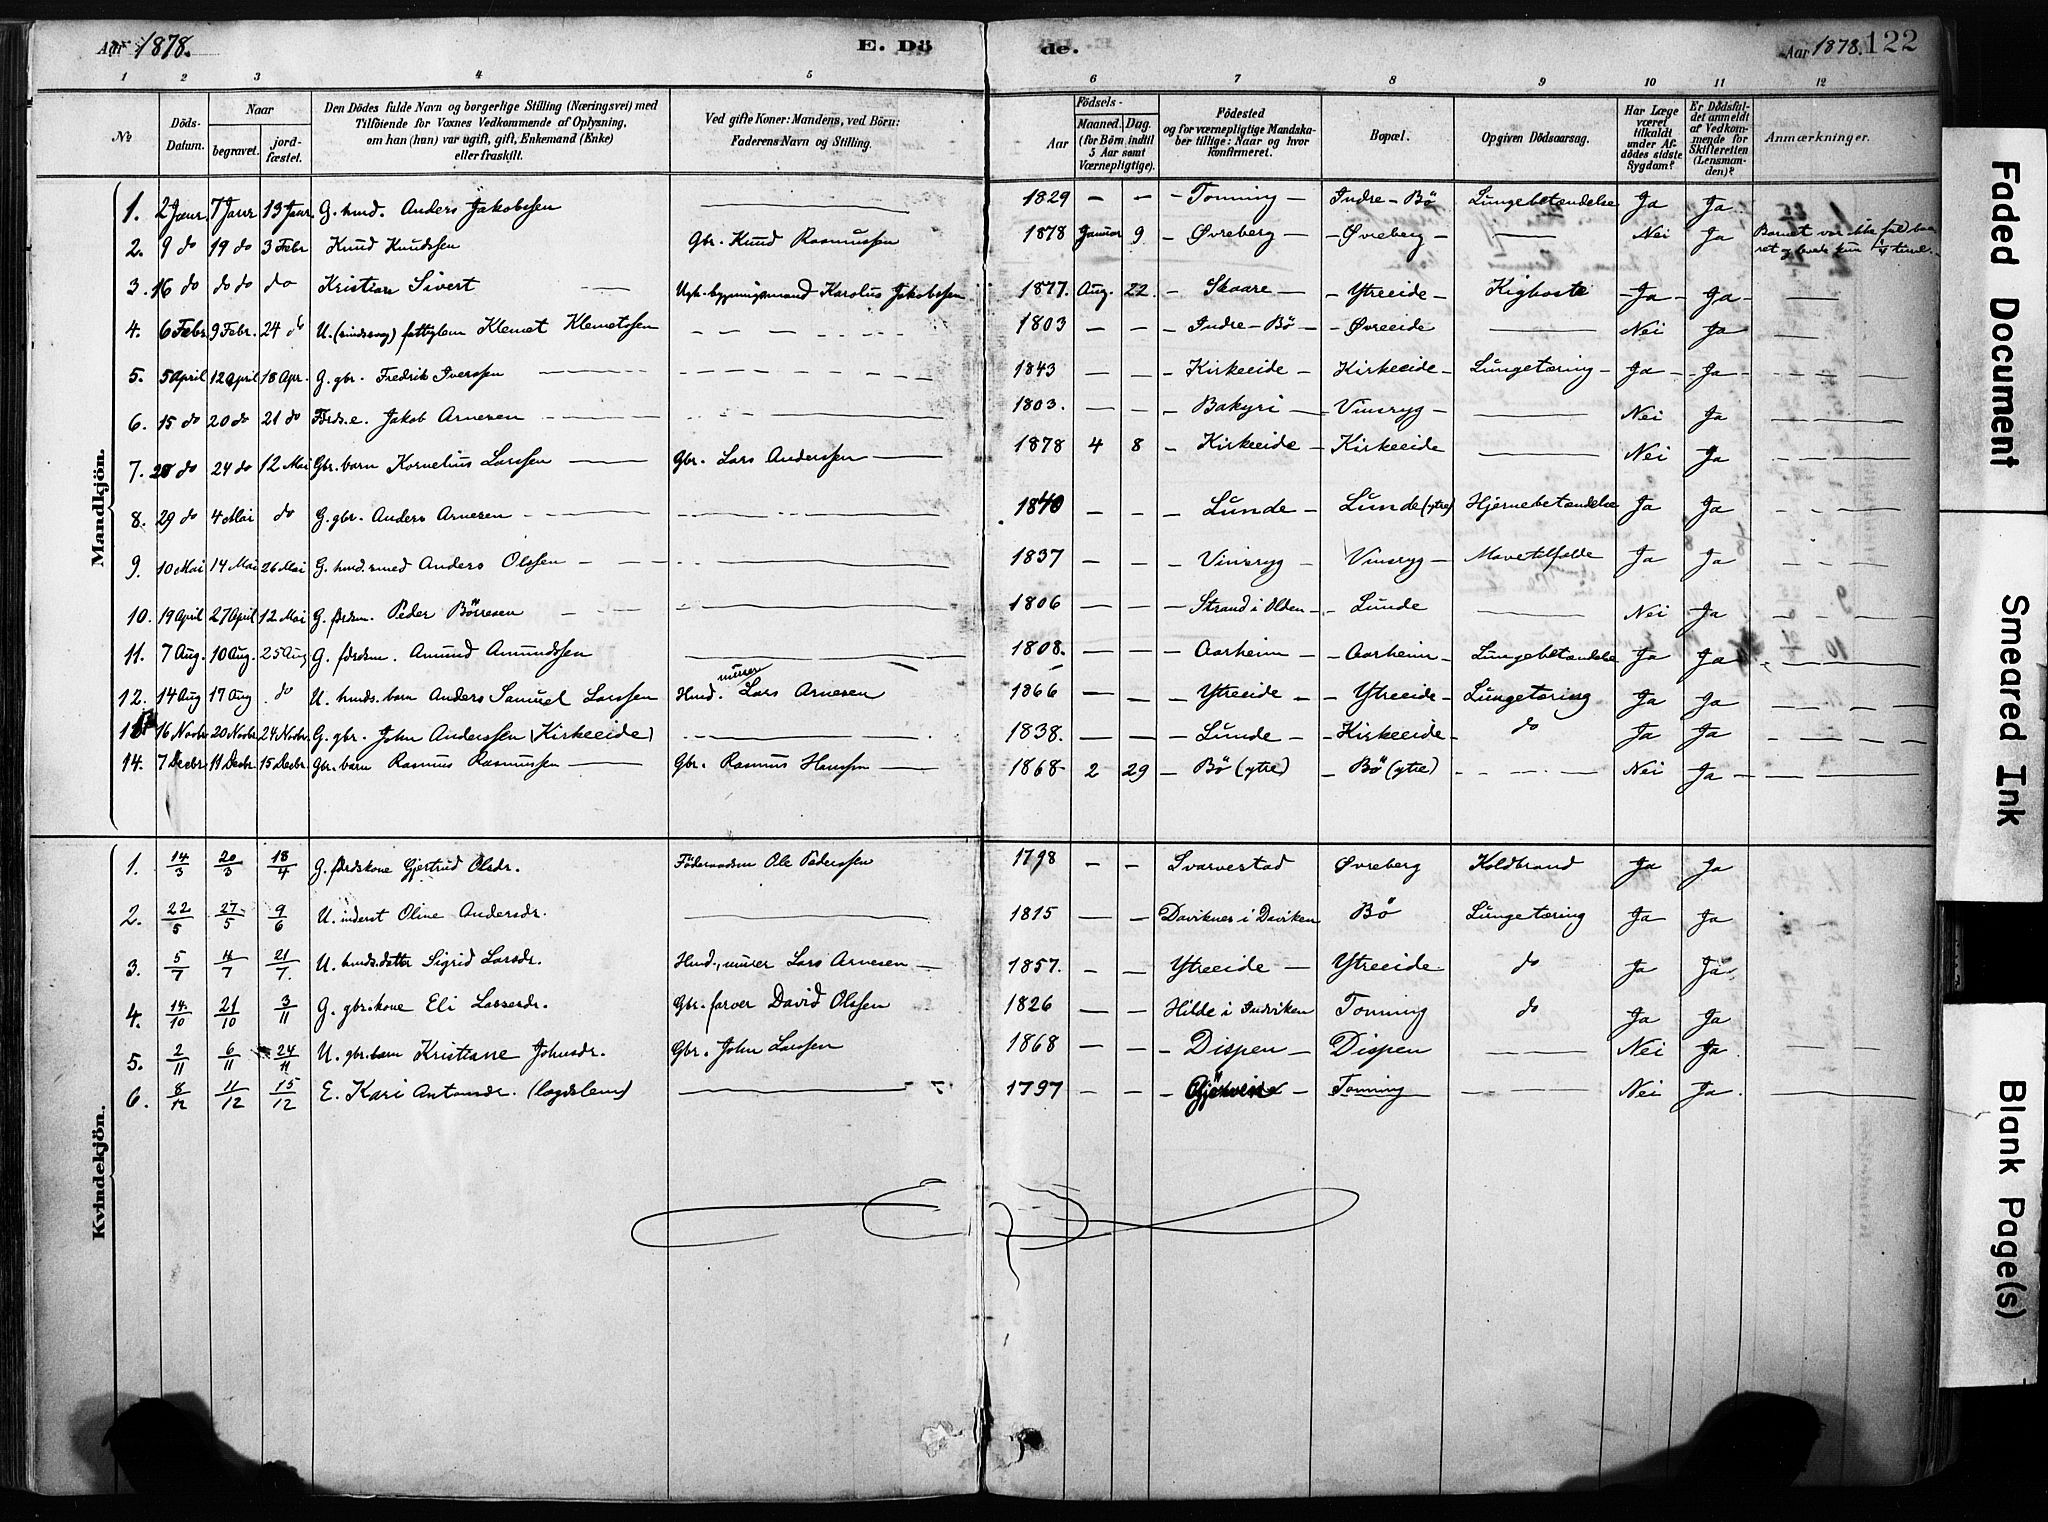 Aar 1878. E. Dö de. Aar 1878. 122
1 2 3 4 5 6 7 8 9 10 11 12
№ Döds-Datum. Naar begravet. jord-fæstet. Den Dödes fulde Navn og borgerlige Stilling (Næringsvei) med Tilföiende for Voxnes Vedkommende af Oplysning, om han (hun) var ugift, gift, Enkemand (Enke) eller fraskilt. Ved gifte Koner: Mandens, ved Börn: Faderens Navn og Stilling. Födsels- Aar Maaned. Dag. (for Börn indtil 5 Aar samt Værnepligtige). Födested og for værnepligtige Mandskaber tillige: Naar og hvor konfirmeret. Bopæl. Opgiven Dödsaarsag. Har Læge været tilkaldt under Afdödes sidste Sygdom? Er Dödsfaldet anmeldt af Vedkommende for Skifteretten (Lensmanden)? Anmærkninger.
Mandkjön.
1. 2 Janr 7 Janr 13 Janr G. hmd. Anders Jakobssen 1829 – – – Tonning – Indre – Bö Lungebetændelse Ja Ja
2. 9 do 19 do 3 Febr Knud Knudssen Gbr. Knud Rasmussen 1878 Januar 9 – Øvreberg – – Øvreberg – Nei Ja Barnet var ikke fuldbaaret og levede kun 1/4 time.
3. 16 do do do do Kristian Sivert Ugh. bygningsmand Karolus Jakobssen 1877. Aug. 22. – Skaare – – Ytreeide – Kighoste – Ja – – Ja –
4. 6 Febr 9 Febr. 24 do U. (sindssvag) fattiglem Klemet Klemetssen 1803 – – – Indre – Bö – – Øvreeide Nei Ja
5. 5 April 12 April 18 Apr. G. gbr. Fredrik Iverssen 1843 – – – Kirkeeide – Kirkeeide – Lungetæring – – Ja – – Ja –
6. 15 do 20 do 21 do Fdrds.e. Jakob Arnesen 1803. – – – Bakyri – Vinsryg – Nei Ja
7. 20 do 24 do 12 Mai Gbr. barn Kornelius Larssen Gbr. Lars Anderssen 1878 4 8 – Kirkeeide – Kirkeeide Nei Ja
8. 29 do 4 Mai do G. gbr. Anders Arnesen 1840 – – – Lunde – Lunde (ytre) Hjernebetændelse Ja Ja
9. 10 Mai 14 Mai 26 Mai G. hmd. smed Anders Olssen 1837 – – – Vinsryg – Vinsryg – Mavetilfælde Ja Ja
10. 19 April 27 April 12 Mai G. fdrdm. Peder Börresen 1806 – – – Strand i Olden – – Lunde Nei Ja
11. 7 Aug. 10 Aug. 25 Aug G. fdrdm. Amund Amundssen 1808. – – – Aarheim – – Aarheim – Lungebetændelse Ja Ja
12. 14 Aug 17 Aug. do U. hmds. barn Anders Samuel Larssen Hmd. murer Lars Arnesen 1866 – – – Ytreeide – – Ytreeide – Lungetæring Ja Ja
13 16 Novbr 20 Novbr 24 Novbr. G. gbr. John Anderssen (Kirkeeide) 1838. – – – Lunde – – Kirkeeide – do Ja Ja
14. 7 Decbr 11 Decbr 15 Decbr Gbr. barn Rasmus Rasmussen Gbr. Rasmus Hanssen 1868 2 29 – Bö (ytre) – Bö (ytre) Nei Ja
Kvindekjön.
1. 14/3 20/3 18/4 G. fdrdskone Gjertrud Olsdr. Föderaadsm Ole Pederssen 1798 – – Svarvestad Øvreberg Koldbrand Ja Ja
2. 22/5 27/5 9/6 U. inderst Oline Andersdr. 1815 – – Daviknes i Daviken Bö Lungetæring Ja Ja
3. 5/7 11/7 21/7. U. hmds. datter Sigrid Larsdr. Hmd., murer Lars Arnesen 1857. – – Ytreeide – Ytreeide do Ja Ja
4. 14/10 21/10 3/11 G. gbr. kone Eli Lassesdr. Gbr. farver David Olssen 1826 – – Hilde i Indviken Tonning do Ja Ja
5. 2/11 6/11 24/11 U. gbr. barn Kristiane Johnsdr. Gbr. John Larssen 1868 – – – Dispen – Dispen Nei Ja
6. 8/12 11/12 15/12 E. Kari Antonsdr. (lægdslem) 1797 – – Tonning Nei Ja
Faded Document
Smeared Ink
Blank Page(s)